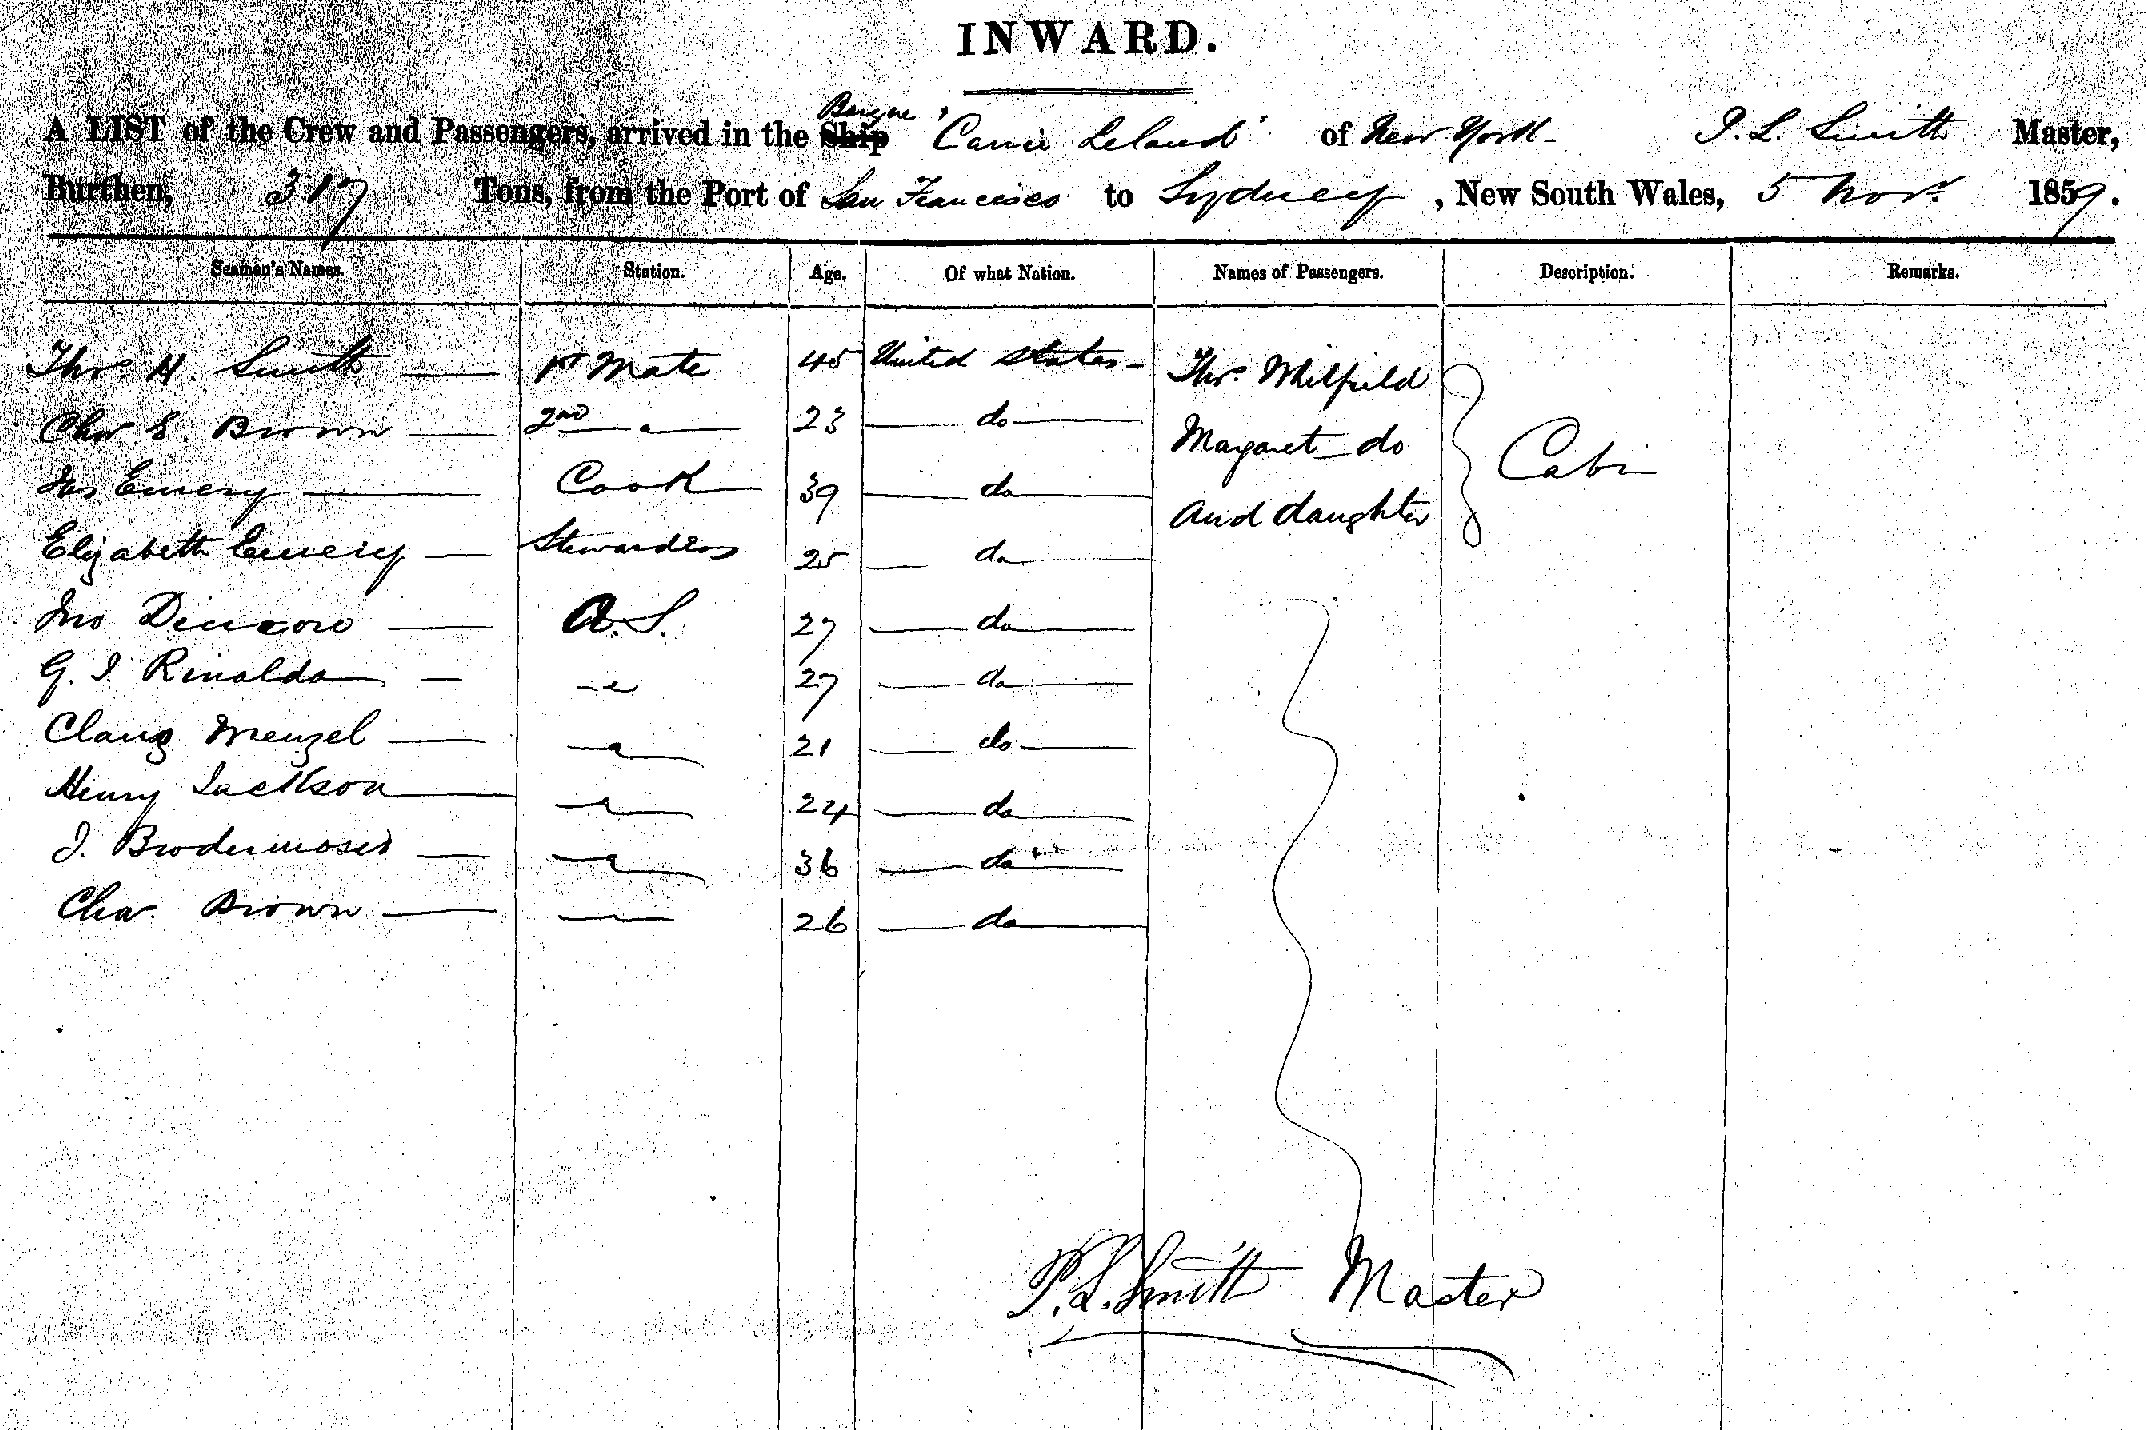 INWARD.
A LIST of the Crew and Passengers, arrived in the Ship Barque "Carrie Leland" of New York P. L. Smith Master,
Burthen, 317 Tons, from the Port of San Francisco to Sydney, New South Wales, 5 Nov. 1859.
Seamen's Names. Station. Age. Of what Nation. Names of Passengers. Description. Remarks.
Thos H. Smith 1st Mate 45 United States Thos. Milfield
Chas E. Brown 2nd " 23 do Margaret do Cabin
Jas Emery Cook 39 do And daughter
Elizabeth Emery Stewardess 25 do
Jno A.S. 27 do
G. I Rinaldo " 27 do
Claus Menzel " 21 do
Henry Jackson " 24 do
J. " 36 do
Chas Brown 26 do
P. L. Smith Master